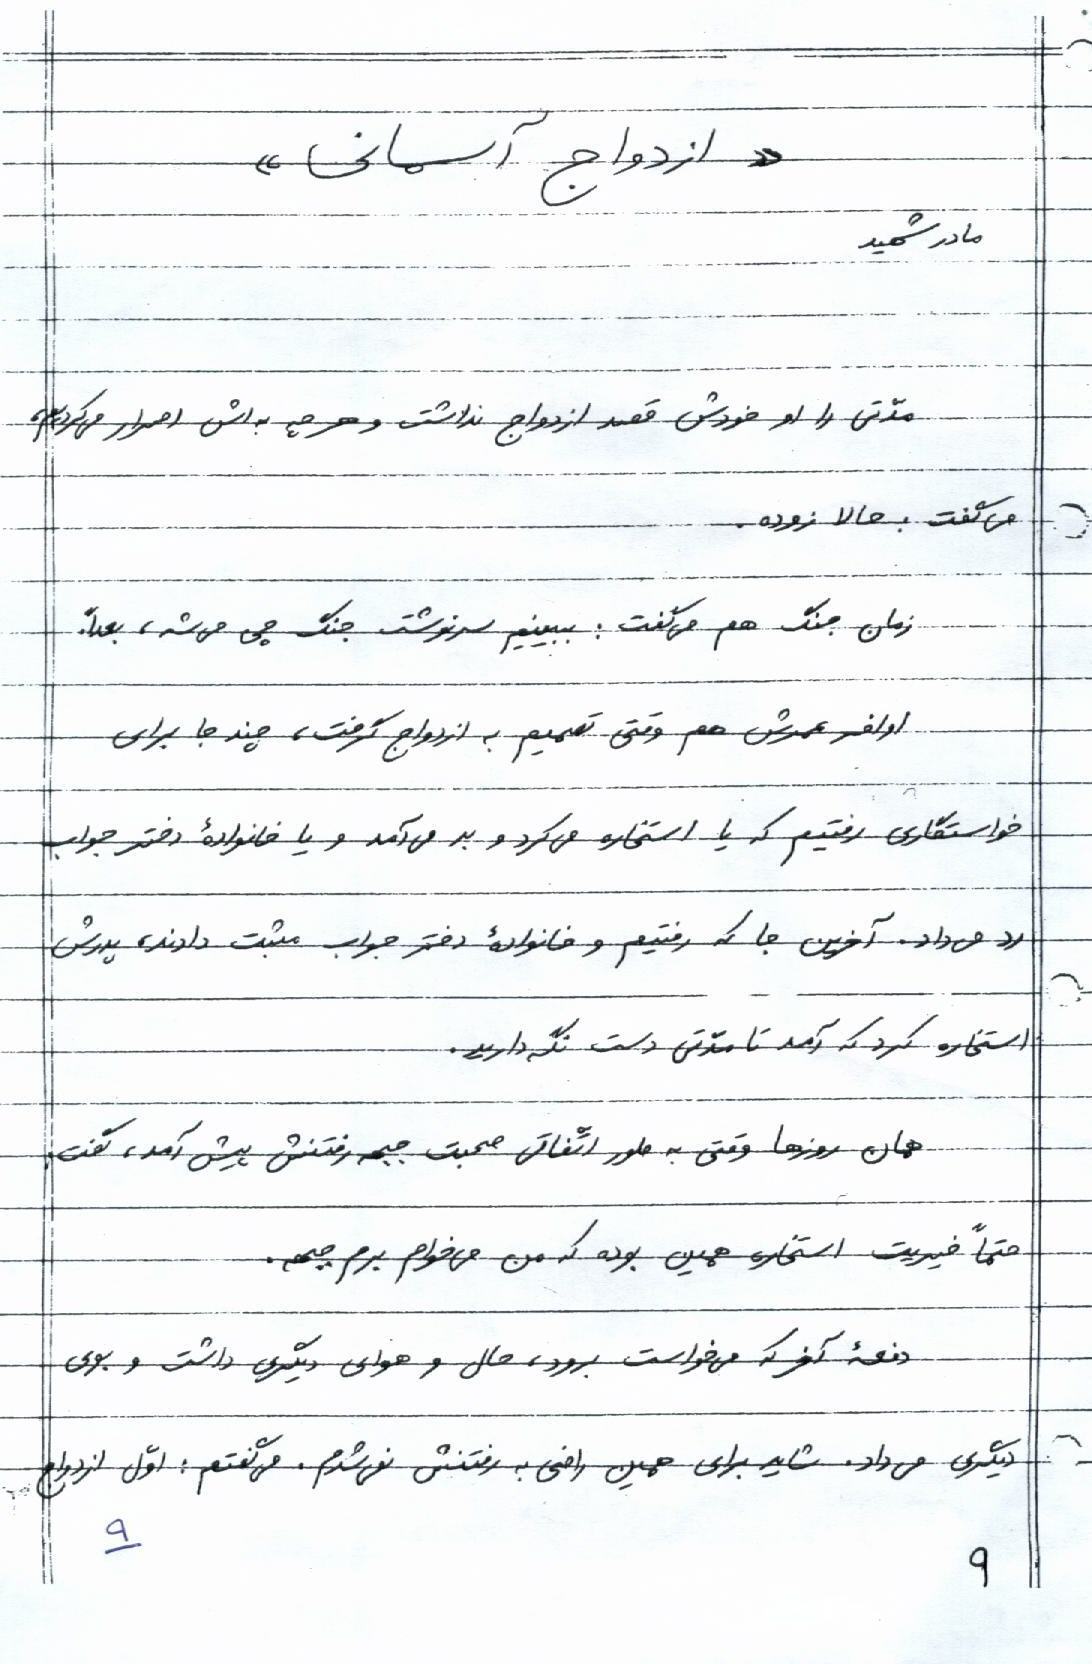 « ازدواج آسمانی »
مادر شهید
مدّتی را او خودش قصد ازدواج نداشت و هر چه به‌اش اصرار می‌کردیم،
می‌گفت: حالا زوده.
زمان جنگ هم می‌گفت: ببینیم سرنوشت جنگ چی می‌شه، بعداً.
اواخر عمرش هم وقتی تصمیم به ازدواج گرفت، چند جا برای
خواستگاری رفتیم که یا استخاره می‌کرد و بد می‌آمد و یا خانوادهٔ دختر جواب
رد می‌داد. آخرین جا که رفتیم و خانوادهٔ دختر جواب مثبت دادند، پدرش
استخاره کرد که آمد تا مدّتی دست نگه دارید.
همان روزها وقتی به طور اتّفاقی صحبت جبهه رفتنش پیش آمد، گفت:
حتماً خیریت استخاره همین بوده که من می‌خوام برم جبهه.
دفعهٔ آخر که می‌خواست برود، حال و هوای دیگری داشت و بوی
دیگری می‌داد. شاید برای همین راضی به رفتنش نمی‌شدم. می‌گفتم: اوّل ازدواج
۹
۹